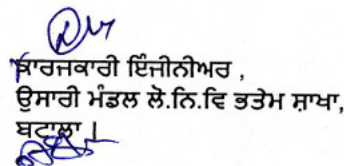 ਕਾਰਜਕਾਰੀ ਇੰਜੀਨੀਅਰ ,
ਉਸਾਰੀ ਮੰਡਲ ਲੋ.ਨਿ.ਵਿ ਭਤੇਮ ਸ਼ਾਖਾ,
ਬਟਾਲਾ |